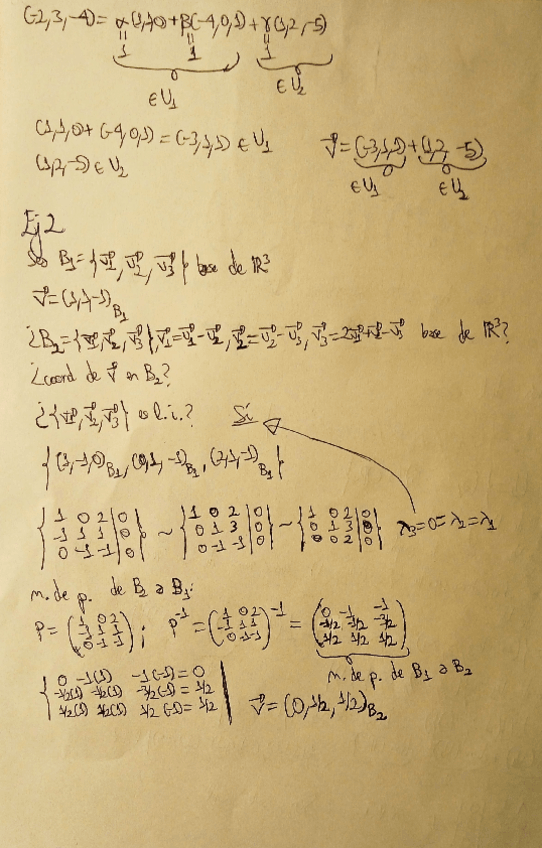 (-2,3,-4) = α(1,1,0) + β(-4,0,1) + γ(1,2,-5)
1 1 1
∈U₁ ∈U₂
(1,1,0) + (-4,0,1) = (-3,1,1) ∈ U₁
(1,2,-5) ∈ U₂
v⃗ = (-3,1,1) + (1,2,-5)
∈U₁ ∈U₂
Ej 2
Sea B₁ = {u⃗₁, u⃗₂, u⃗₃} base de ℝ³
v⃗ = (1,1,-1)B₁
¿B₂ = {v⃗₁, v⃗₂, v⃗₃}, v⃗₁ = u⃗₁ - u⃗₂, v⃗₂ = u⃗₂ - u⃗₃, v⃗₃ = 2u⃗₁ + u⃗₂ - u⃗₃ base de ℝ³?
¿coord de v⃗ en B₂?
¿{v⃗₁, v⃗₂, v⃗₃} l.i.? Sí
{(1,-1,0)B₁, (0,1,-1)B₁, (2,1,-1)B₁}
{1 0 2 | 0} ~ {1 0 2 | 0} ~ {1 0 2 | 0}
{-1 1 1 | 0} {0 1 3 | 0} {0 1 3 | 0} λ₃=0=λ₂=λ₁
{0 -1 -1 | 0} {0 -1 -1 | 0} {0 0 2 | 0}
m. de p. de B₂ a B₁:
P = (1 0 2; -1 1 1; 0 -1 -1); P⁻¹ = (1 0 2; -1 1 1; 0 -1 -1)⁻¹ = (0 -1 -1; -1/2 -1/2 -3/2; 1/2 1/2 1/2)
m. de p. de B₁ a B₂
0 -1(1) -1(-1) = 0
-1/2(1) -1/2(1) -3/2(-1) = 1/2
1/2(1) 1/2(1) 1/2(-1) = 1/2
v⃗ = (0, 1/2, 1/2)B₂